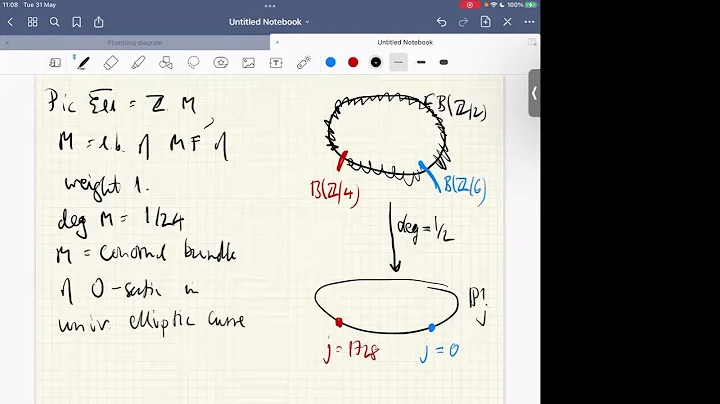 11:08 Tue 31 May
100%
Untitled Notebook
Plumbing diagram
Untitled Notebook
Pic Ell = ℤ M
M = l.b. of MF's of
weight 1.
deg M = 1/24
M = conormal bundle
of O-section in
univ. elliptic curve
B(ℤ/2)
B(ℤ/4)
B(ℤ/6)
deg = 1/2
ℙ¹
j
j = 1728
j = 0